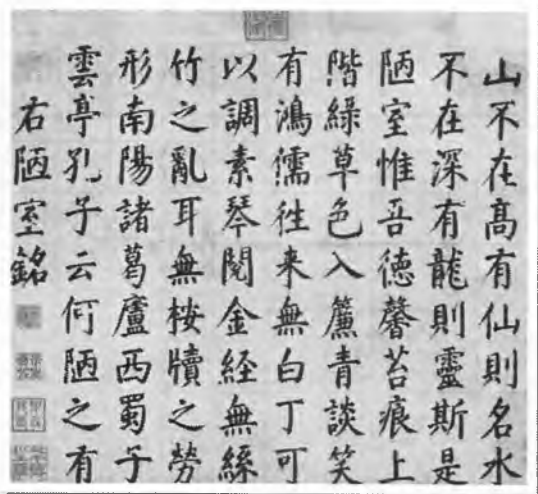 山不在高有仙則名水
不在深有龍則靈斯是
陋室惟吾德馨苔痕上
階綠草色入簾青談笑
有鴻儒徃来無白丁可
以調素琴閱金経無絲
竹之亂耳無桉牘之勞
形南陽諸葛廬西蜀子
雲亭孔子云何陋之有
右陋室銘